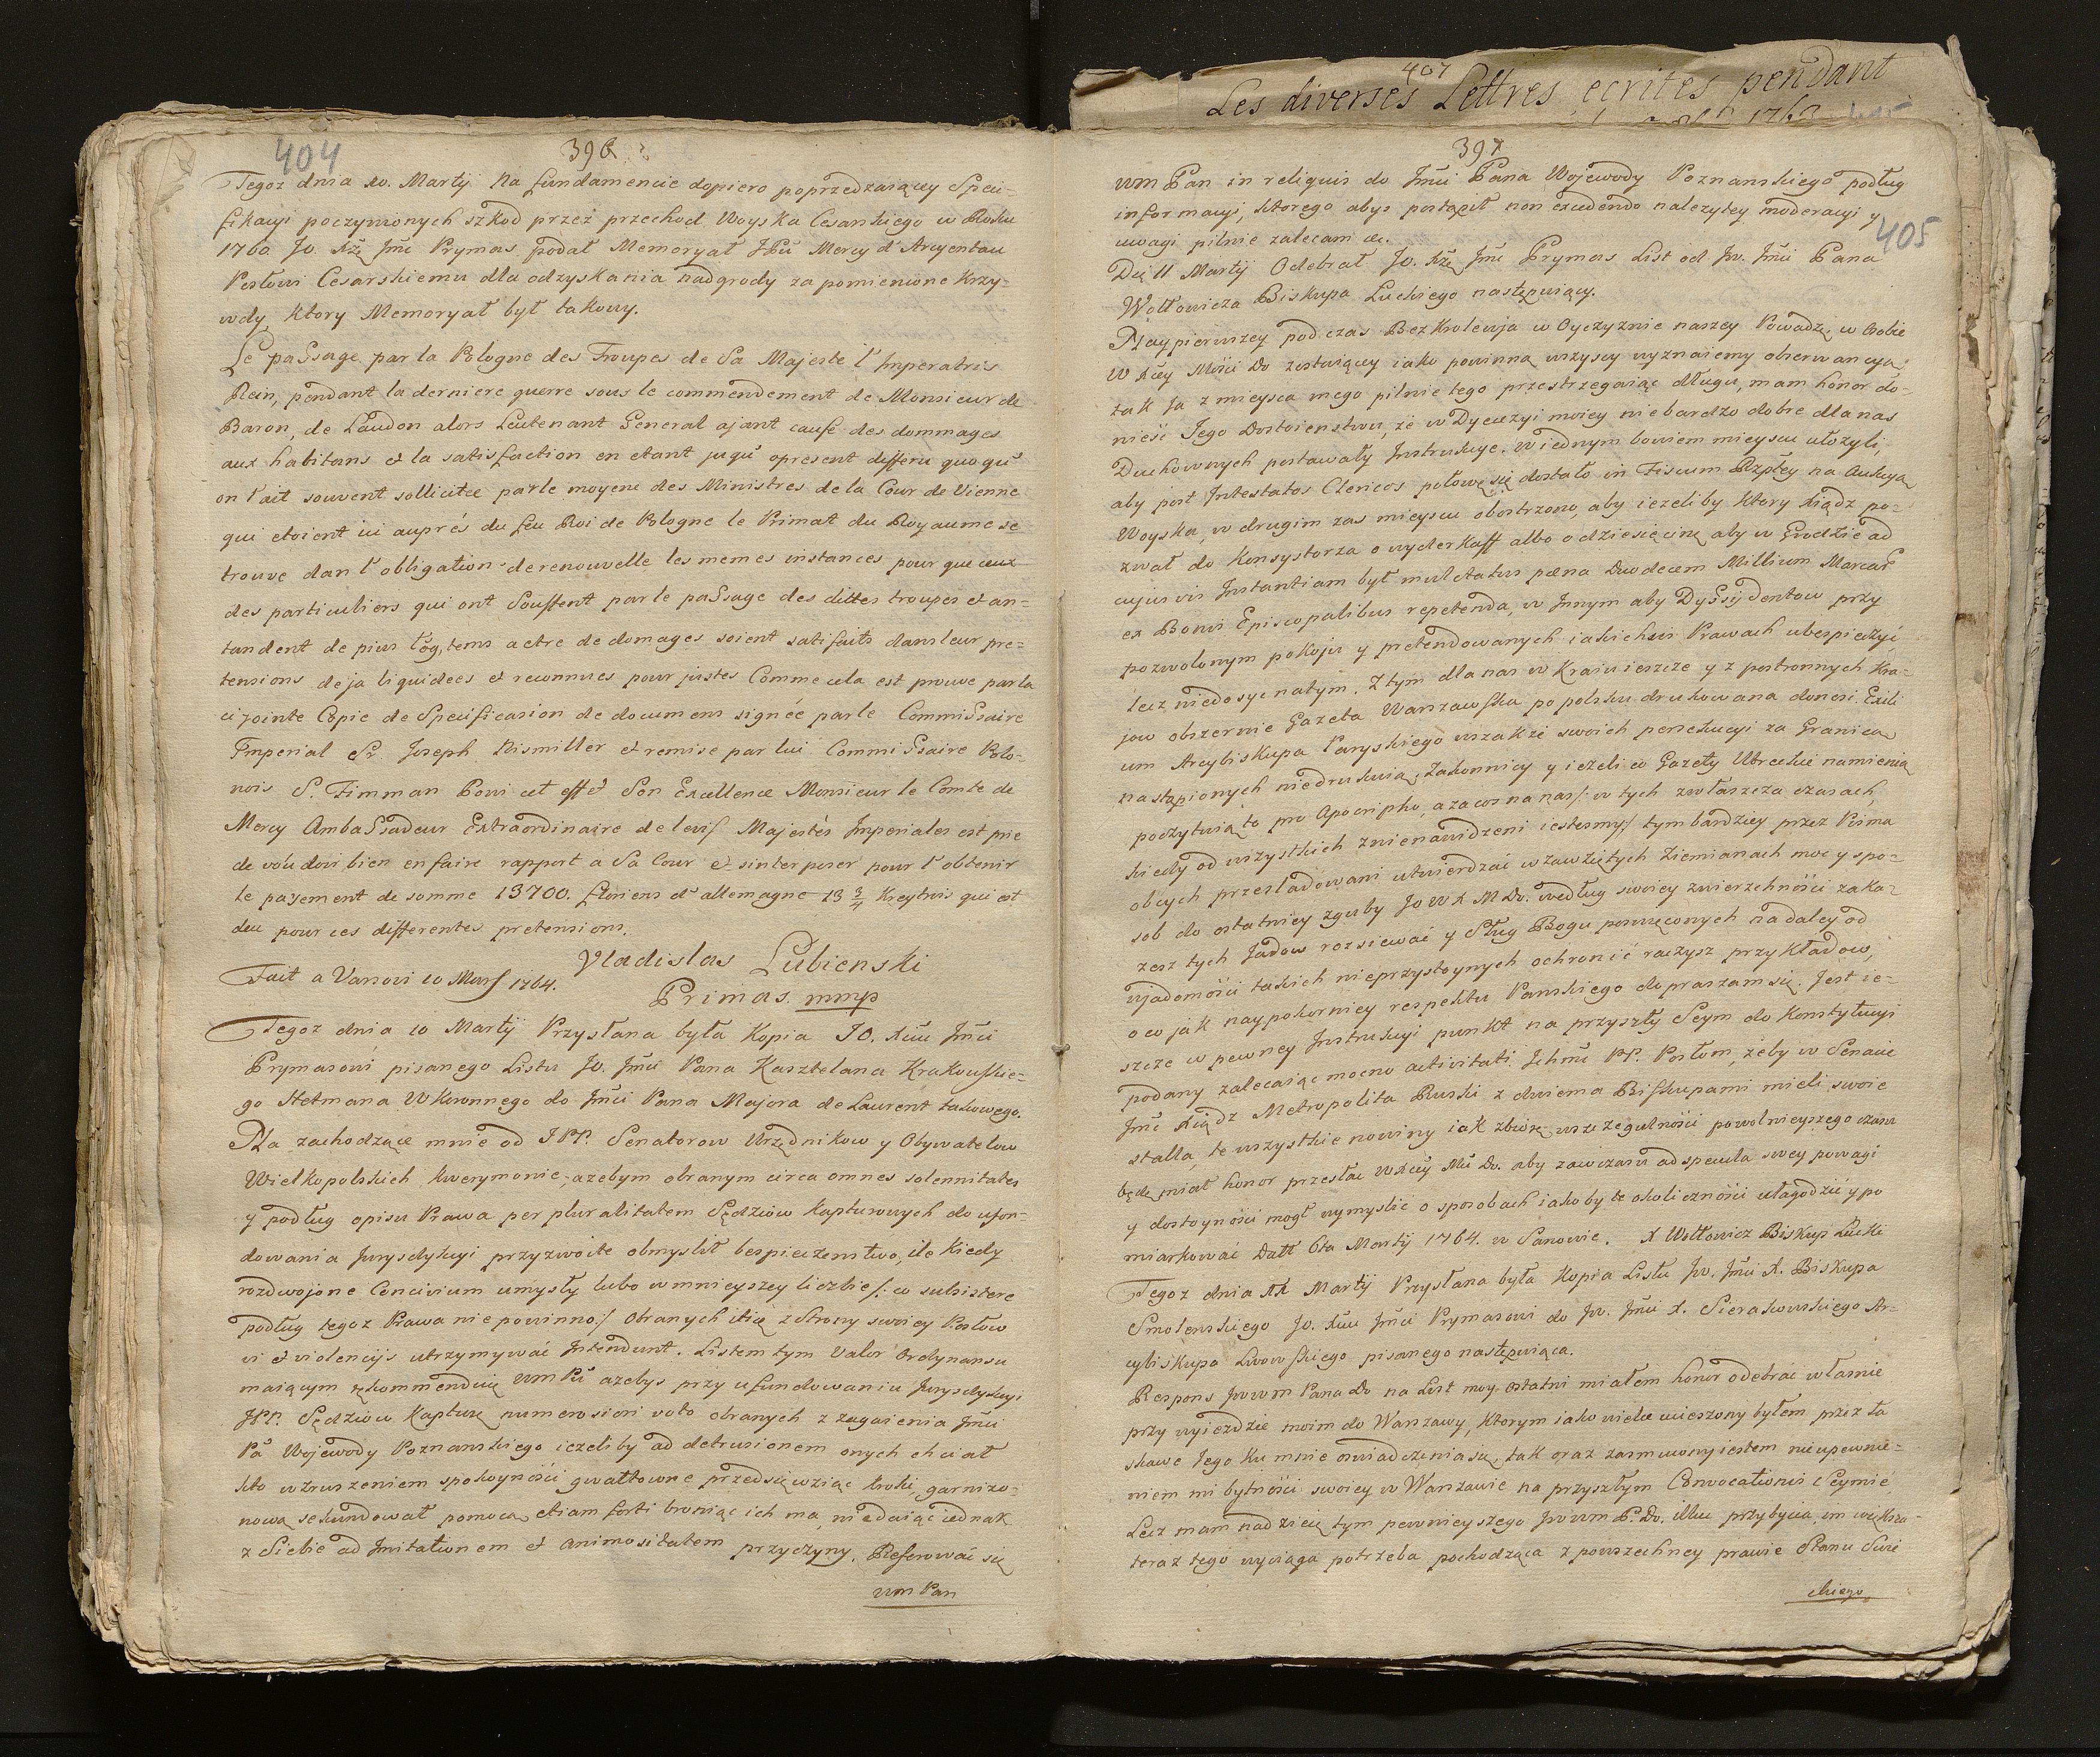 404
396
Tegoz dnia 10. Martij Na fundamencie dopiero poprzedzaiący Speci-
fikacyi poczynionych szkod przez przechod Woyska Cesarskiego w Roku
1760. Jo. Xżę Jmć Prymas podał Memoryał JPu Mercy d'Arcyentau
Posłowi Cesarskiemu dla odzyskania nadgrody za pomienione krzy-
wdy, ktory Memoryał był takowy.
Le paSsage par la Pologne des Troupes de Sa Majeste l'Imperatris
Rein, pendant la derniere guerre sous le commendement de Monsieur de
Baron, de Laudon alors Leutenant General ajant cause des dommages
aux habitans et la satisfaction en etant juqu' apresent differu quoqu'
on l'ait souvent sollicitee parle moyene des Ministres de la Cour de Vienne
qui etoient ici auprés du feu Roi de Pologne le Primat du Royaume se
trouve dan l'obligation de renouvelle les memes instances pour que ceux
des particuliers qui ont Souffent par le paSsage des dittes troupes et an-
tandent de pius lóg,tems a etre de domages soient satisfaits dans leur pre=
tensions deja liquidees et reconnues pour justes Comme cela est prouve par la
ci jointe Copie de Specificasion de documens signée par le CommiSsaire
Emperial Sr. Joseph Rismiller et remise par lui CommiSsaire Polo-
nois S. Timman Powi cet effet Son Excellence Monsieur le Comte de
Mercy AmbaSsadeur Extraordinaire de leurs Majestés Imperiales est prie
de voúdoir bien en faire rapport a Sa Cour et sinterposer pour l'obtenir
le payement de somme 13700. floriens d'allemagne 13 3/4 Kreytrois qui est
deu pour ces differentes pretensions.
Vladislas Lubienski
Fait a Varsovi 10 Mars 1764.
Primas. mmp
Tegoz dnia 10 Martij Przysłana była Kopia JO. Xciu Jmci
Prymasowi pisanego Listu Jo. Jmci Pana Kasztelana Krakowskie=
go Hetmana WKoronnego do Jmci Pana Majora de Laurent takowego.
Na zachodzące mnie od JPP. Senatorow Urzędnikow y Obywatelow
Wielkopolskich kwerymonie, azebym obranym circa omnes solennitates
y podług opisu Prawa per pluralitatem Sędziow Kapturowych do ufon-
dowania Jurysdykcyi przyzwoite obmyslił bespieczenstwo, ile kiedy
rozdwojone Concivium umysły lubo w mnieyszey liczbie/: co subsistere
podług tegoz Prawa nie powinno:/ Obranych itią z Strony swoiey Posłow
vi et violencijs utrzymywać Intendunt. Listem tym Valor Ordynansu
maiącym rekommenduię WmPu azebys przy ufundowaniu Jurysdykcyi
JPP. Sędziow Kapturo numerosiori voto obranych z zagaienia Jmci
Pa Wojewody Poznanskiego iezeliby ad detrusionem onych chciał
kto wzruszeniem spokoyności gwałtowne przedsięwziąc kroki, garnizo-
nową sekundował pomocą etiam forti broniąc ich ma, nie daiąc iednak
z Siebie ad Imitationem et animositatem przyczyny. Referować się
wm Pan
407
Les diverses Lettres ecrites pendant
397
405
wm Pan in reliquis do Jmci Pana Wojewody Poznanskiego podług
informacyi, ktorego abys postąpił non excedendo nalezytey moderacyi y
uwagi pilnie zalecam &c.
Die 11 Martij Odebrał Jo. Xżę Jmć Prymas List od Jw. Jmci Pana
Wołłowicza Biskupa Luckiego następuiący.
Naypierwszey podczas BezKrolewja w Oyczyznie naszey Powadze w Osobie
W Xcey Mości Do zostaiącey iako powinną wszyscy wyznaiemy obserwancyą
tak Ja z mieysca mego pilnie tego przestrzegaiąc długu, mam honor do-
nieść Jego Dostoienstwu, że w Dyecezyi moiey nie bardzo dobre dla nas
Duchownych postawały Instrukcye. w iednym bowiem mieyscu ułozyli,
aby post Intestatos Clericos połowę się dostało in Fiscum Rzpltey na Aukcyą
Woyska, w drugim zas mieyscu obostrzono, aby iezeliby ktory Xiądz po-
zwał do Konsystorza o wyderkaff albo o dziesięcinę, aby w Grodzie ad
cujus vis Instantiam był mulctatus pœna Duodecem Millium Marcar
ex Bonis Episcopalibus repetenda, w Innym aby DySsydentow przy
pozwolonym pokoju y pretendowanych iakichsis Prawach ubespieczyć,
lecz niedosyc natym. Z tym dla nas w Kraiu ieszcze y z postronnych Kra-
jow obszernie Gazeta Warszawska po polsku drukowana donosi. Exili
um Arcybiskupa Paryskiego wszakże swoich persekucyi za Granicą
nastąpionych niedrukuią, Zakonnicy y iezeli co Gazety Utreckie namienią
poczytuią to pro Apocripho, a za cos na nas/: w tych zwłaszcza czasach,
kiedy od wszystkich znienawidzeni iestesmy:/ tym bardziey przez Pisma
obcych przesladowani utwierdzać w zawziętych Ziemianach moc y spo-
sob do ostatniey zguby JO W X M Do. według swoiey zwierzchności zaka-
zesz tych Jadow rozsiewać y Sług Bogu poswięconych na daley od
wjadomości takich nieprzystoynych ochronić raczysz przykładow,
o co jak naypokorniey respektu Panskiego dopraszam się. Jest ie-
szcze w pewney Instrukcyi punkt na przyszły Seym do Konstytucyi
podany zalecaiąc mocno activitati Jchmć PP. Posłom, żeby w Senacie
Jmć Xiądz Metropolita Ruski z dwiema Biskupami mieli swoie
stalla, te wszystkie nowiny iak zbiorę, wszczegulności powolnieyszego czasu
będę miał honor przesłac WXcey Mci Do. aby zawczasu ad specula swey powagi
y dostoyności mogł wymyslic o sposobach iakoby te okoliczności ułagodzić y po
miarkować Datt 6ta Martij 1764. w Janowie. X Wołłowicz Biskup Lucki
Tegoz dnia XX Martij Przysłana była Kopia Listu Jw. Jmci X. Biskupa
Smolenskiego Jo. Xciu Jmci Prymasowi do Jw. Jmci X. Sierakowskiego Ar-
cybiskupa Lwowskiego pisanego następuiąca.
Respons Jwwm Pana Do na List moy ostatni miałem honor odebrać własnie
przy wyiezdzie moim do Warszawy, Ktorym iako wielce ucieszony byłem przez ła
skawe Jego ku mnie oswiadczenia się, tak oraz zasmucony iestem nieupewnie-
niem mi bytności swoiey w Warszawie na przyszłym Convocationis Seymie,
Lecz mam nadzieię tym pewnieyszego Jwwm P. Do. illuc przybycia, im większa
teraz tego wyciąga potrzeba pochodząca z powszechney prawie Stanu Swie
ckiego